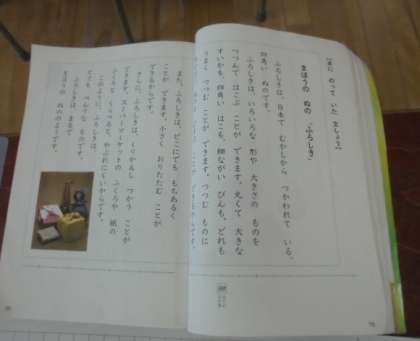 まほうの ぬの「ふろしき」
ふろしきは、日本で むかしから つかわれて いる、
四角い ぬのです。
ふろしきは、いろいろな 形や 大きさの ものを
つつんで はこぶ ことが できます。丸くて 大きな
すいかも、四角い はこも、細ながい びんも、どれも
うまく つつむ ことが できます。つつむ ものに
また、ふろしきは、どこにでも もちあるく
ことが できます。小さく おりたたむ ことが
できるからです。
さらに、ふろしきは、くりかえし つかう ことが
できます。スーパーマーケットの ふくろや 紙の
ふくろと くらべると、やぶれにくいからです。
このように、ふろしきは、
とても べんりな ものです。
ふろしきは、まるで
まほうの ぬののようです。